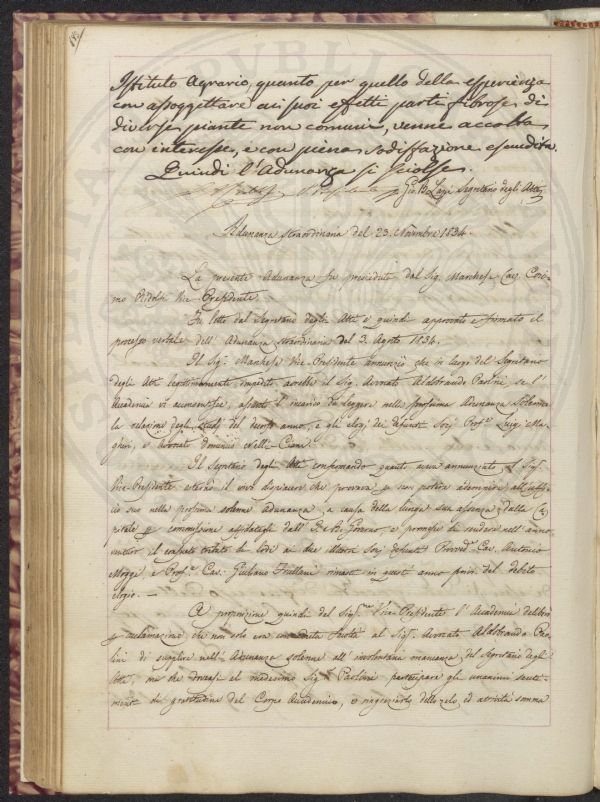 Istituto Agrario, quanto per quello della esperienza
con assoggettare ai suoi effetti parti fibrose di
diverse piante non comuni, venne accolta
con interesse, e con piena sodisfazione esaudita.
Quindi l'Adunanza si sciolse.
Segretario degli Atti
Adunanza straordinaria del 23. Novembre 1834.
La presente Adunanza fu preceduta dal Sig. Marchese Cav. Cosi-
mo Ridolfi Vice-Presidente.
Fu letto dal Segretario degli Atti e quindi approvato e firmato il
processo verbale dell'Adunanza straordinaria del 3. Agosto 1834.
Il Sig. Marchese Vice-Presidente annunziò che in luogo del Segretario
degli Atti impedito, avrebbe il Sig. Avvocato Aldobrando Paolini, se l'
Accademia vi acconsentisse, assunto l'incarico di leggere nella prossima Adunanza Solenne
la relazione degli Studj del decorso anno, e gli elogj dei defunti Socj Prof. Luigi Ma-
e Avvocato
Il Segretario degli Atti confermando quanto aveva annunziato il Sig.
Vice-Presidente esternò il vivo dispiacere che provava a non potere adempiere all'uffi-
cio suo nella prossima solenne Adunanza, a causa della lunga sua assenza dalla Ca-
pitale p commissione affidatagli dall' Governo e promesse di rendere nell'anno
il consueto tributo di lode ai due illustri Socj defunti Provved. Cav. Antonio
e Prof. Cav. Giuliano Frullani rimasti in quest'anno privi del debito
elogio. —
A proposizione quindi del Sig. Vice-Presidente l'Accademia deliberò
p acclamazione che non solo era conceduta facoltà al Sig. Avvocato Aldobrando Pao-
lini di supplire nell'Adunanza solenne all'involontaria mancanza del Segretario degli
Atti, ma che dovesse al medesimo Sig. Paolini partecipare gli unanimi senti-
menti di gratitudine del Corpo Accademico, e ringraziarlo dello zelo, ed attività somma